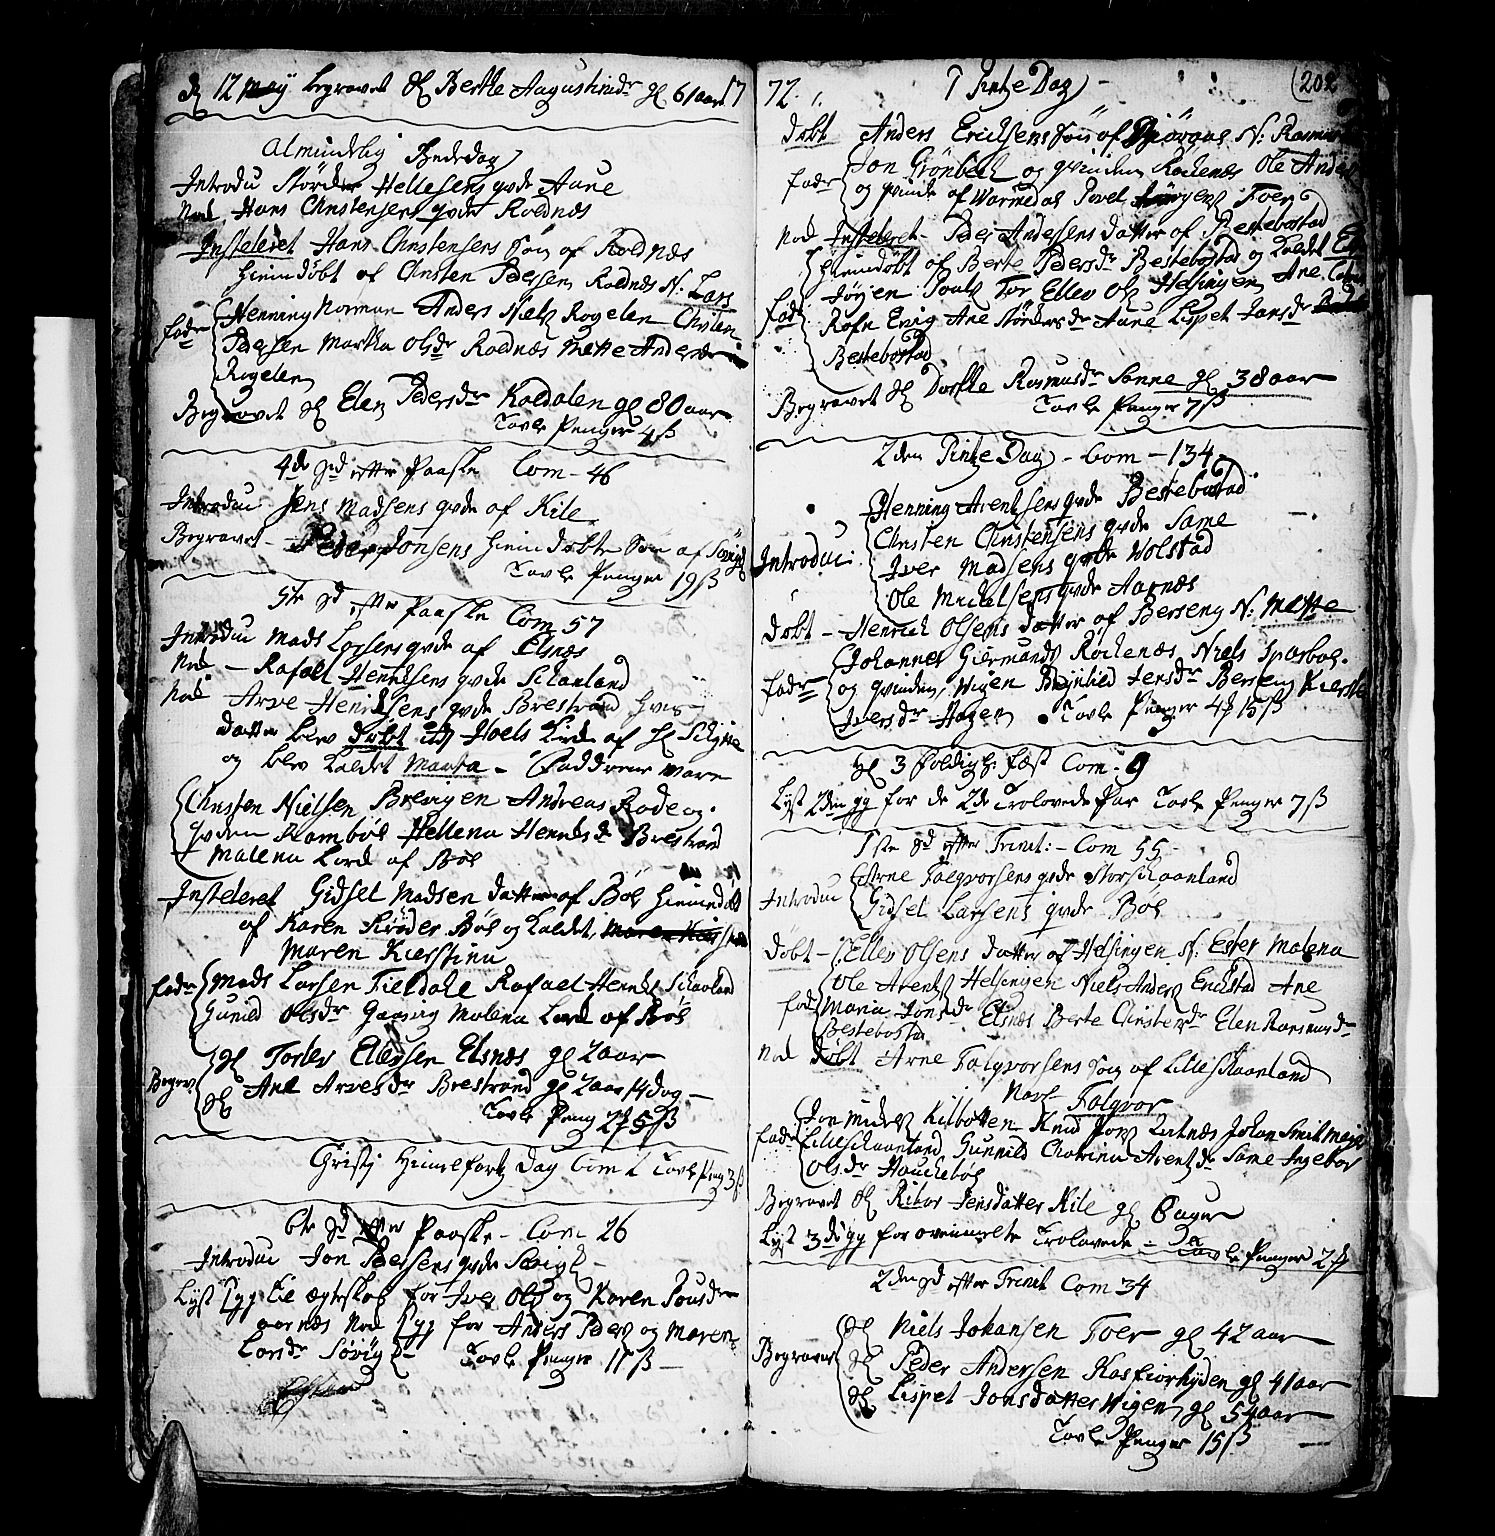 d 12 Maÿ begravet Sl Berthe Augustinsdr gl 61 aar 17
Almindelig Bededag
Introdu Størcher Hellesens qvde Aune
Nod Hans Christensens qvde Roednæs
Insteleret Hans Christensens Søn af Roednæs
hiemdøbt af Christen Pedersen Roednæs N: Lars
fadr Henning Norman Anders Niels Rogelen Christen
Pedersen Martha Olsdr Roednæs Mette Andersdr
Rogelen
Begravet Sl Elen Pedersdr Kaldalen gl 80 aar
Tavle Penger 4 ß
4de Sd efter Paaske Com - 46
Introduc Jens Madsens qvde af Kile
Begravet - Peder Jonsens hiemdøbte Søn af Søvig
Tavle Penger 19 ß
5te Sd efter Paaske Com 57
Introduc Mads Larsens qvde af Elsnæs
Nod - Rafael Henrichsens qvde Schaanland
Nod Arve Henrichsens qvde Brestrand hvis
datter blev døbt udj Hoels Kirke af H Schytte
og blev kaldet Marta - Fadderne vare
Christen Nielsen Brevigen Andreas Rode og
qvden Rambøl Hellena Henrichsdr Brestrand
Malena Lorch af Bøl
Insteleret Gidsel Madsen datter af Bøl hiemdøbt
af Karen Krøder Bøl og kaldet Maren Kierstin
Maren Kierstina
fadr Mads Larsen Fieldahl Rafael Henrichs Schaanland
Gunild Olsdr Gaasvig Malena Lorch af Bøl
Begrav Sl Tosten Ellevsen Elsnæs gl 2 aar
Sl Ane Arvesdr Brestrand gl 2 aar 14 dag
Tavle Peng 2 5 ß
Cristj Himmelfarts Dag Com 2 Tavle Peng 3 ß
6te Sd efter Paaske - Com 26
Introduc Jon Pedersens qvde Søvig
Lyst 1 gg til ægteskab for Iver Ols og Karen Povsdr
aarnæs Nod 1 gg for Anders Peders og Maren
Larsdr Søvig - Tavle Penger 11 ß
72. 1 Pintze Dag - 202
døbt Anders Erichsens Søn af N: Rasmus
fadr Jon Grønbech og qvinden Rochenæs Ole Anders
og qvinde af Warmedal Povel Jørgens Foer
Nod Insteleret - Peder Andersens datter af Bestebostad
hiemdøbt af Berte Pedersdr Bestebostad og kaldet
fadr Jørgen Pouls For Ellev Ols Helsingen Ane
Rafn Evig Ane Størchersdr Aune Lispet Jonsdr
Bestebostad
Begravet Sl Dorthe Rasmusdr Sanne gl 38 aar
Tavle Penger 7 ß
2den Pintze Dag - Com - 134
Henning Arentsens qvde Bestebostad
Christen Christensens qvde Same
Introduc: Iver Madsens qvde Wolstad
Ole Michelsens qvde Aarnæs
døbt - Henrich Olsens datter af Berseng N: Mette
fadr Johannes Giermunds Rochenæs Niels Spasbol
og qvinden Wigen Brynhild Jensdr Berseng Kierste
Iversdr Hagen Tavle Penger 4 15 ß
3 foldighs fæst Com - 9
Lyst 2den gg for de 2de Trolovede Par Tavle Penger 7 ß
1ste Sd efter Trinit: - Com 55 -
Introduc Arne Falqvorsens qvde Storschaanland
Gidsel Larsens qvde Bøl
Døbt - Ellev Olsens datter af Helsingen N: Ester Malena
fadr Ole Arents Helsingen Niels Anders Erichstad Ane
Maria Jonsdr Elsnæs Berte Christensdr Elen Rasmusdr
Bestebostad
Nod døbt Arne Falqvorsens Søn af Lilleschaanland
Navl Falqvor
fadr Jon Kilbotten Knud Jons Leknæs Johan Smit
Lilleschaanland Gunnild Chatrina Arentsdr Same Ingebor
Olsdr Houchebøl
Begravet Sl Rebor Jensdatter Kile gl 8 uger
Lyst 3die gg for ovenmelte Trolovede - Tavle Penger 2
2den Sd efter Trinit Com 34
Begravet Sl Niels Johansen Foer gl 42 aar
Sl Peder Andersen Kasfiorhyden gl 41 aar
Sl Lispet Jonsdatter Wigen gl 54 aar
Tavle Penger 15 ß